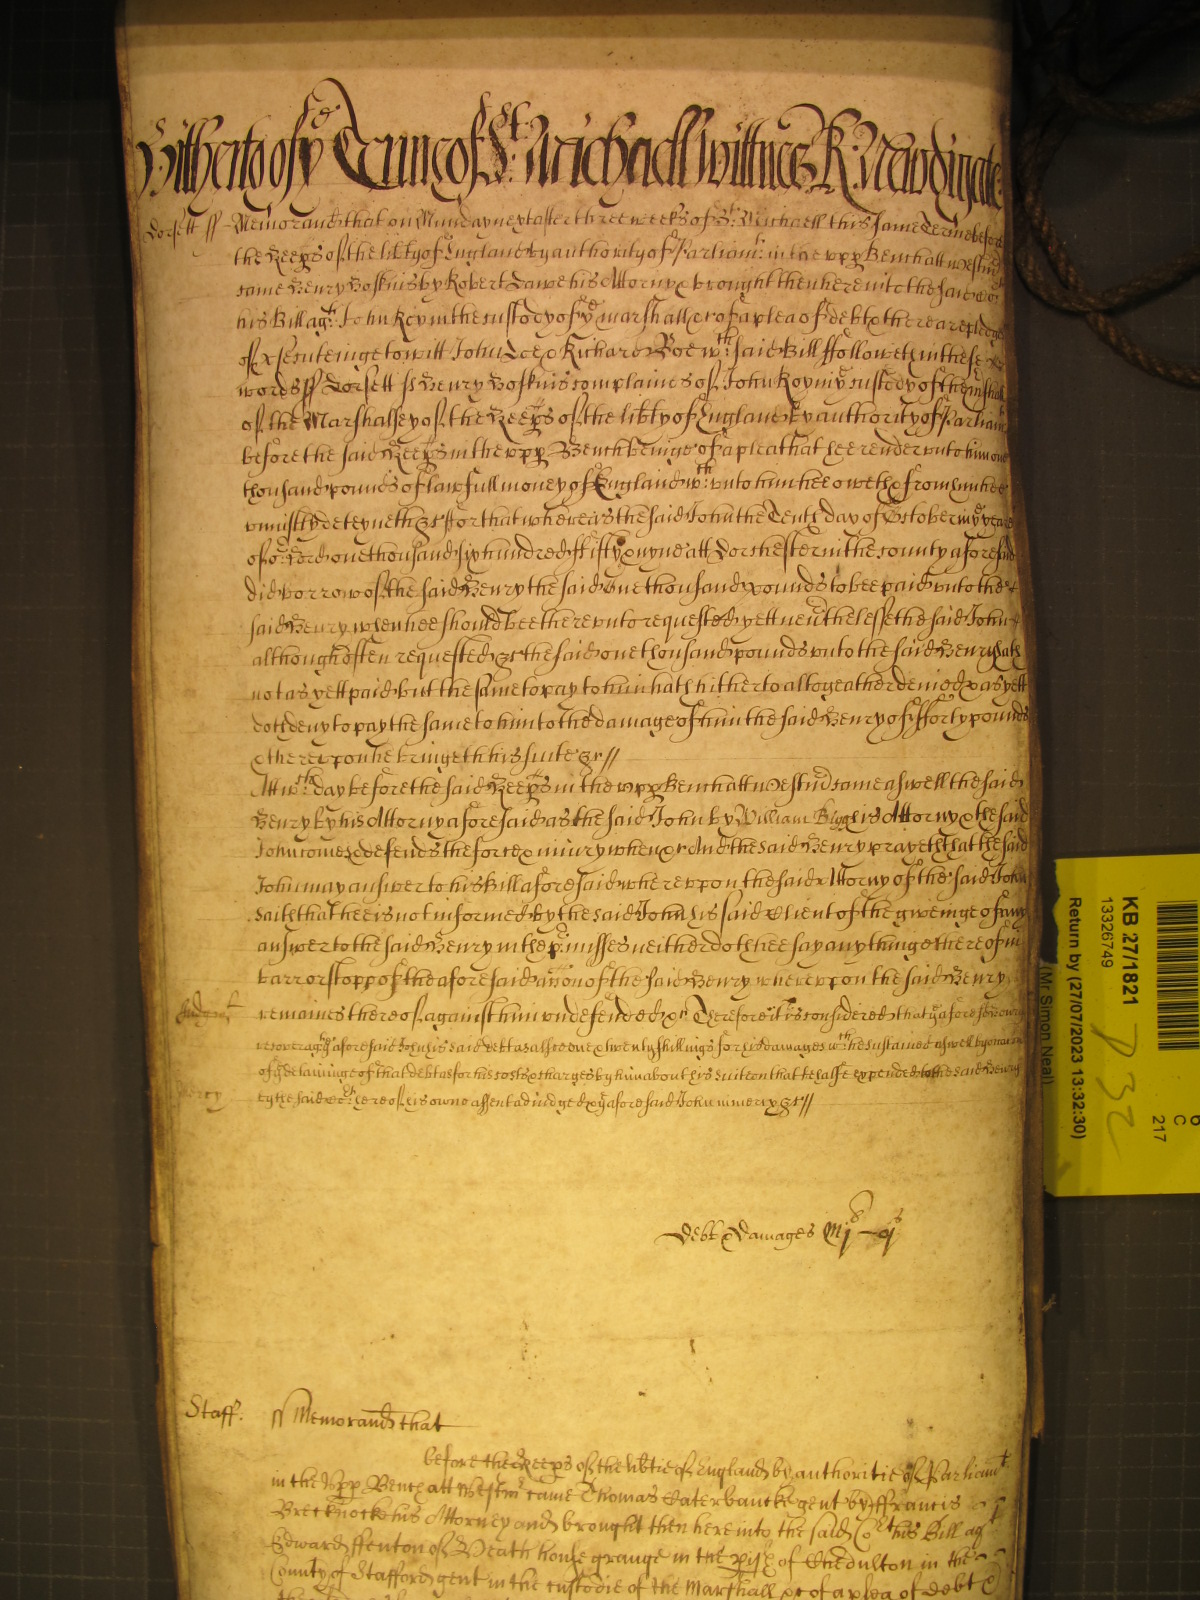 Hitherto of ye Terme of St. Michaell Wittnes R: Newdigate:
Dorsett ss Memorand that on Munday next after three weekes of St: Michaell this same Terme before
the Keeps of the libty of England by authority of Parliamt: in the upp Bench att Westmr
came Henry Hoskins by Robert Lawe his Attorny & brought then here into the said Cort
his Bill agt: John Roy in the custody of ye marshall &c of a plea of debt & there are pledges
of psecuteinge to witt John Doe & Richard Roe wch: said Bill ffolloweth in these
words ss Dorsett ss Henry Hoskins complaines of John Roy in ye custody of the mshall
of the Marshalsey of the Keeps of the libty of England by authority of Parliamt
before the said Keeps in the upp Bench beinge of a plea that hee render unto him one
thousand pounds of lawfull money of England wch: unto him hee oweth & from him hee
uniustly deteyneth &c ffor that whereas the said John the Tenth day of October in ye yeare
of or: Lord one thousand six hundred ffifty & nyne att Dorchester in the county aforesaid
did borrow of the said Henry the said one thousand pounds to bee paid unto the
said Henry when hee should bee thereunto requested yett nevertheless the said John
although often requested &c the said one thousand pounds unto the said Henry hath
not as yett paid but the same to pay to him hath hitherto altogeather denied & as yett
doth deny to pay the same to him to the damage of him the said Henry of ffforty pounds
& thereupon he bringeth his suite &c //
Att wch: day before the said Keeps in the upp Bench att Westmr came aswell the said
Henry by his Attorny aforesaid as the said John by William Bigg his Attorny & the said
John comes & defends the force & iniury when &c And the said Henry prayeth that the said
John may answer to his Bill aforesaid whereupon the said Attorny of the said John
saith that hee is not informed by the said John his said Client of the giveinge of any
answer to the said Henry in the pmisses neither doth hee say any thinge thereof in
barr or stopp of the aforesaid accon of the said Henry whereupon the said Henry
Judgmt remaines thereof against him undefended &c Therefore it is considered that ye aforesd Henry
recover agt ye aforesaid John his said debt as alsoe twenty shillings for his damages wch he sustained aswell by occasion
of ye detaininge of that debt as for his costs & charges by him about his suite on that behalfe expended to the said Henry
mercy by the said Cort hereof his owne assent adiudged & ye aforesaid John in mercy &c //
Debt & damages Mli – xxs
Staff. ss Memorand that
before the Keeps of the libtie of England by authoritie of Parliamt
in the Upp Bench att Westmr came Thomas Caterbancke gent by ffrancis
Brecknocke his Attorney and brought then here into the said Cort his Bill agt
Edward ffenton of Heath house grange in the pish of Chedulton in the
County of Stafford gent in the custodie of the Marshall &c of a plea of debt &
KB 27/1821
13326749
Return by (27/07/2023 13:32:30)
(Mr Simon Neal)
P 32
6
C
217